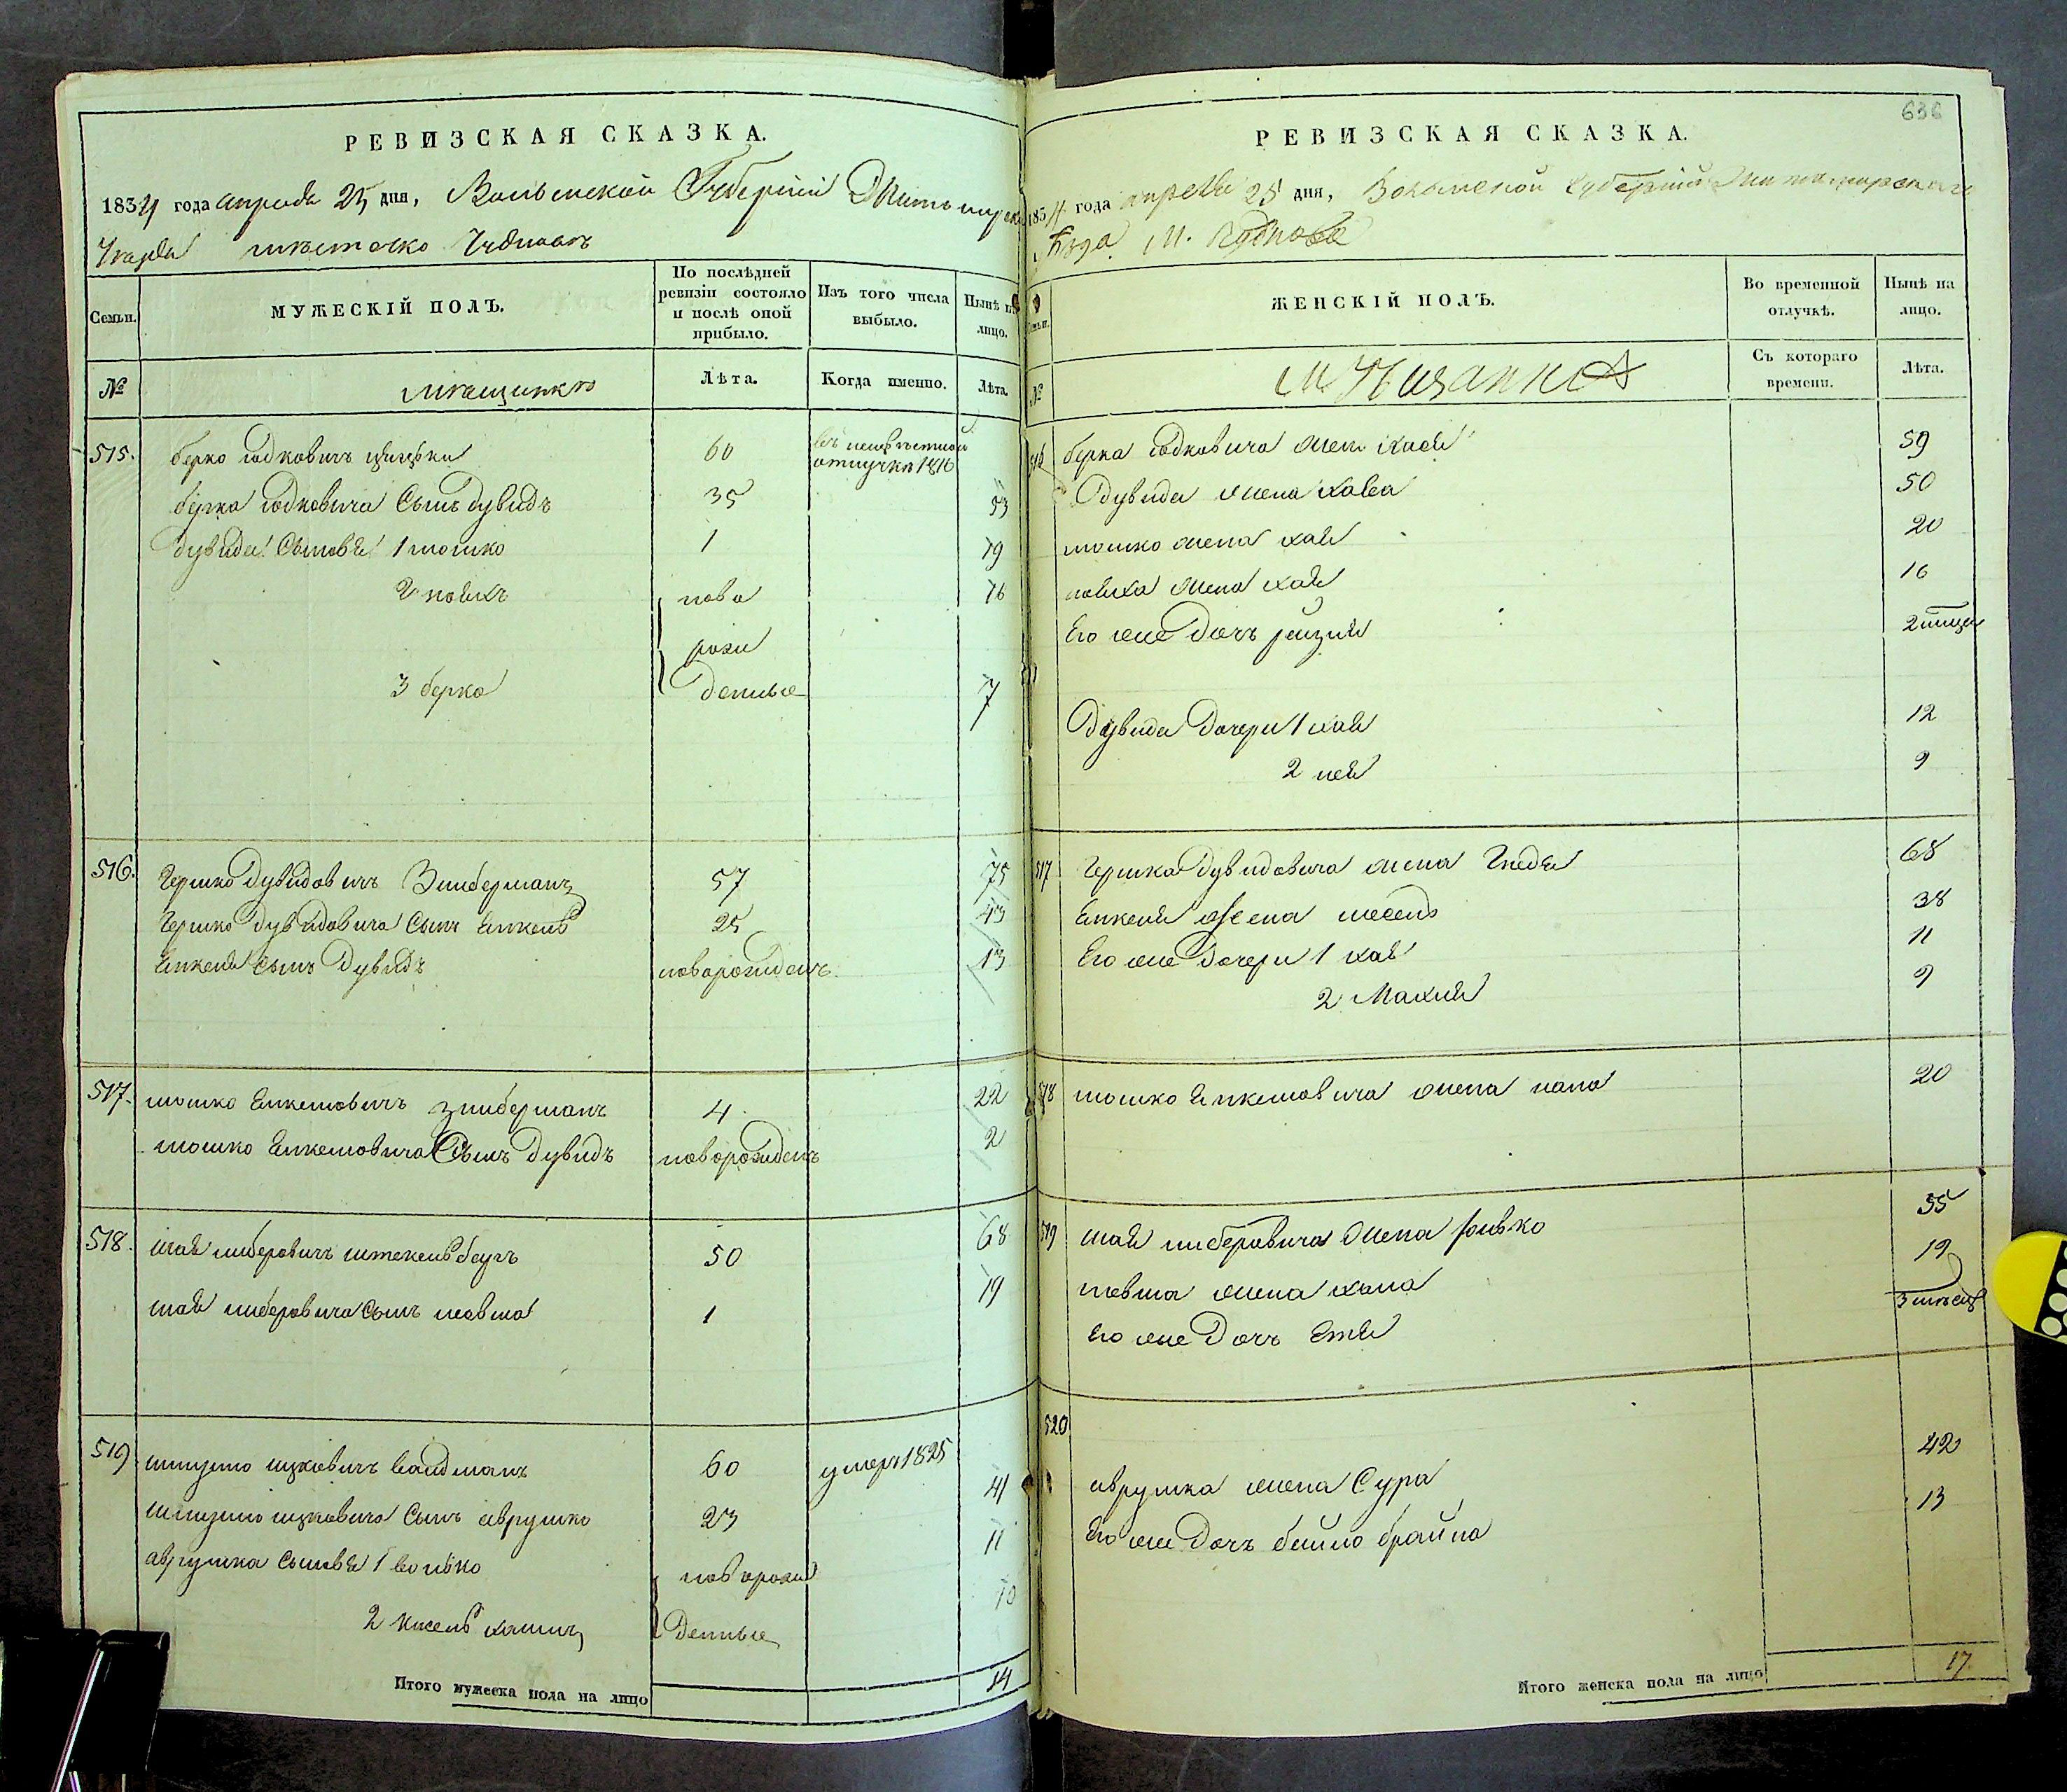 РЕВИЗСКАЯ СКАЗКА.
1834 года апреля 25 дня, Волынской Губернии Житомирска
Уезда местечко Чуднова
Семьи.
МУЖЕСКІЙ ПОЛЪ.
По послѣдней ревизіи состояло и послѣ оной прибыло.
Изъ того числа выбыло.
Нынѣ на лицо.
№
мещанко
Лѣта.
Когда именно.
Лѣта.
515. берко іодковичъ 60 въ неизвестной отлучке 1816
берка іодковича Сынъ дувидъ 35 53
дувида Сыновья 1 мошко 1 19
2 ново 16
рожи
3 берко денные 7
516. Гершко дувидовичъ Зильберманъ 57 75
Гершко дувидовича Сынъ Янкель 25 43
Янкеля Сынъ Дувидъ новорожденъ 13
517. мошко Янкелевичъ зильберманъ 4 22
мошко Янкелевича Сынъ дувидъ новорожденъ 2
518. шая либеровичъ штекельбергъ 50 68
шая либеровича Сынъ 1 19
519 шлиомо ицковичъ вайдманъ 60 умеръ 1825
шлиомо ицковича Сынъ аврумко 23 41
аврумка Сыновья 1 волько новорожи 11
2 Кисель хаимъ денные 10
Итого мужеска пола на лицо 14
636
РЕВИЗСКАЯ СКАЗКА.
1834 года апреля 25 дня, Волынской Губернии Житомирскаго
уезда М. Чуднова
Семьи.
ЖЕНСКІЙ ПОЛЪ.
Во временной отлучкѣ.
Нынѣ на лицо.
№
Мещанка
Съ котораго времени.
Лѣта.
516 берка іодковича жена 59
Дувида жена хава 50
мошко жена хая 20
жена хая 16
Его же дочь рейзя 2 месеца
Дувида дочери 1 хая 12
2 лея 9
517 Гершка дувидовича жена 68
Янкеля жена 38
Его же дочери 1 хая 11
2 Малия 9
518 мошко Янкелевича жена хана 20
519 шая либеровича жена ривко 55
жена хана 19
Его же дочь Етя 3 месец
520
аврумка жена Сура 42
Его же дочь бейла брайна 13
Итого женска пола на лицо 17.